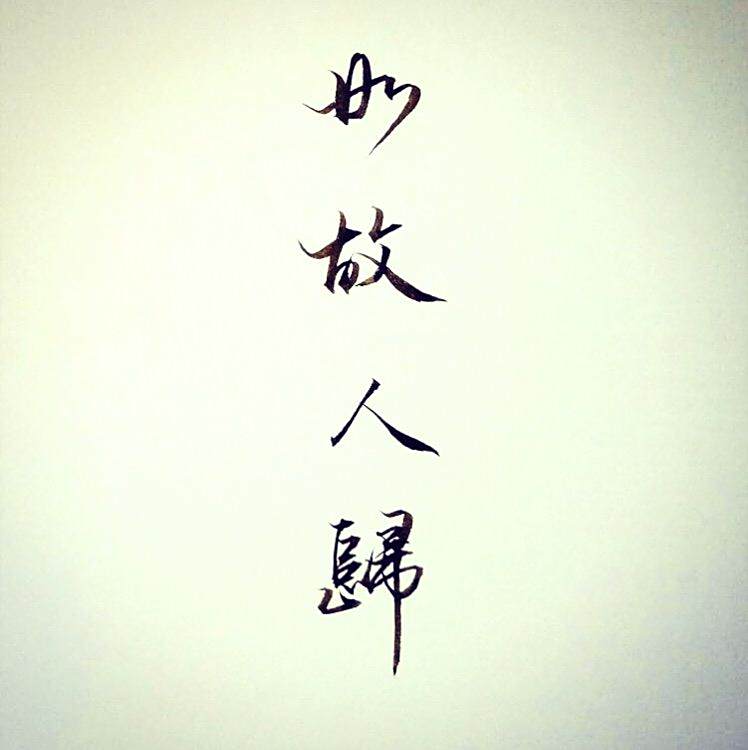 如故人歸